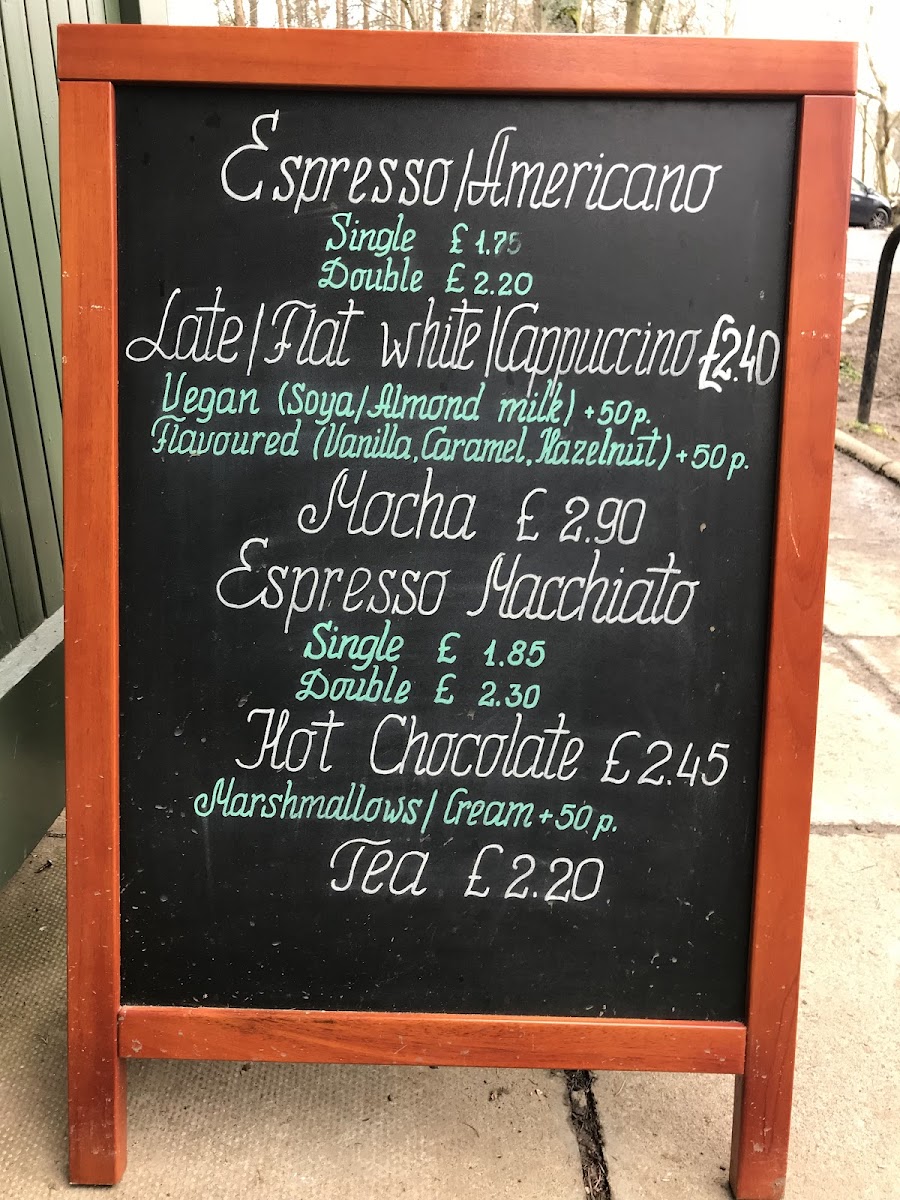 Espresso/Americano
Single £ 1.75
Double £ 2.20
Late/Flat white/Cappuccino £2.40
Vegan (Soya/Almond milk) +50p.
Flavoured (Vanilla, Caramel, Hazelnut) +50p.
Mocha £ 2.90
Espresso Macchiato
Single £ 1.85
Double £ 2.30
Hot Chocolate £2.45
Marshmallows/Cream +50p.
Tea £2.20